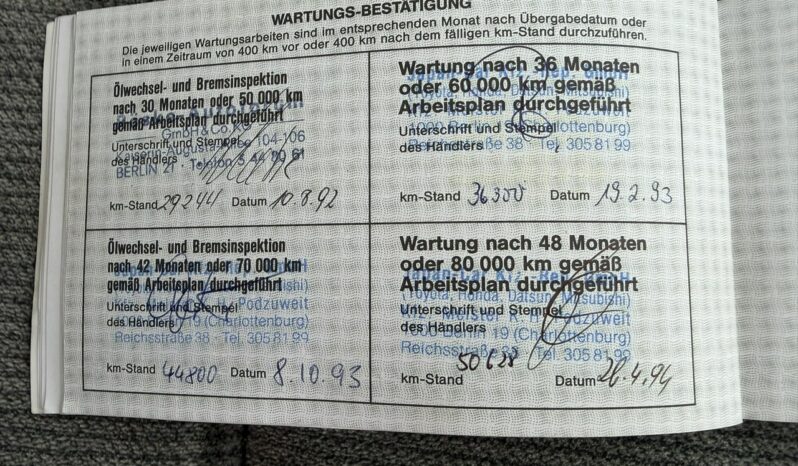 WARTUNGS-BESTÄTIGUNG
Die jeweiligen Wartungsarbeiten sind im entsprechenden Monat nach Übergabedatum oder
in einem Zeitraum von 400 km vor oder 400 km nach dem fälligen km-Stand durchzuführen.
Ölwechsel- und Bremsinspektion
nach 30 Monaten oder 50 000 km
gemäß Arbeitsplan durchgeführt
GmbH & Co KG
Unterschrift und Stempel
104-106
des Händlers
BERLIN 21 - Telefon
km-Stand 29244 Datum 10.8.92
Wartung nach 36 Monaten
oder 60 000 km gemäß
Arbeitsplan durchgeführt
Unterschrift und Stempel
(Charlottenburg)
des Händlers
Reichsstraße 38 Tel. 305 81 99
km-Stand 36300 Datum 19.2.93
Ölwechsel- und Bremsinspektion
nach 42 Monaten oder 70 000 km
gemäß Arbeitsplan durchgeführt
Unterschrift und Stempel
Podzuweit
des Händlers
19 (Charlottenburg)
Reichsstraße 38 · Tel. 305 81 99
km-Stand 44800 Datum 8.10.93
Wartung nach 48 Monaten
oder 80 000 km gemäß
Japan-Car Kfz.-Rep. GmbH
Arbeitsplan durchgeführt
(Toyota, Honda, Datsun, Mitsubishi)
Unterschrift und Stempel
des Händlers
Berlin 19 (Charlottenburg)
Reichsstraße 38 Tel. 305 81 99
km-Stand 50628 Datum 26.4.94